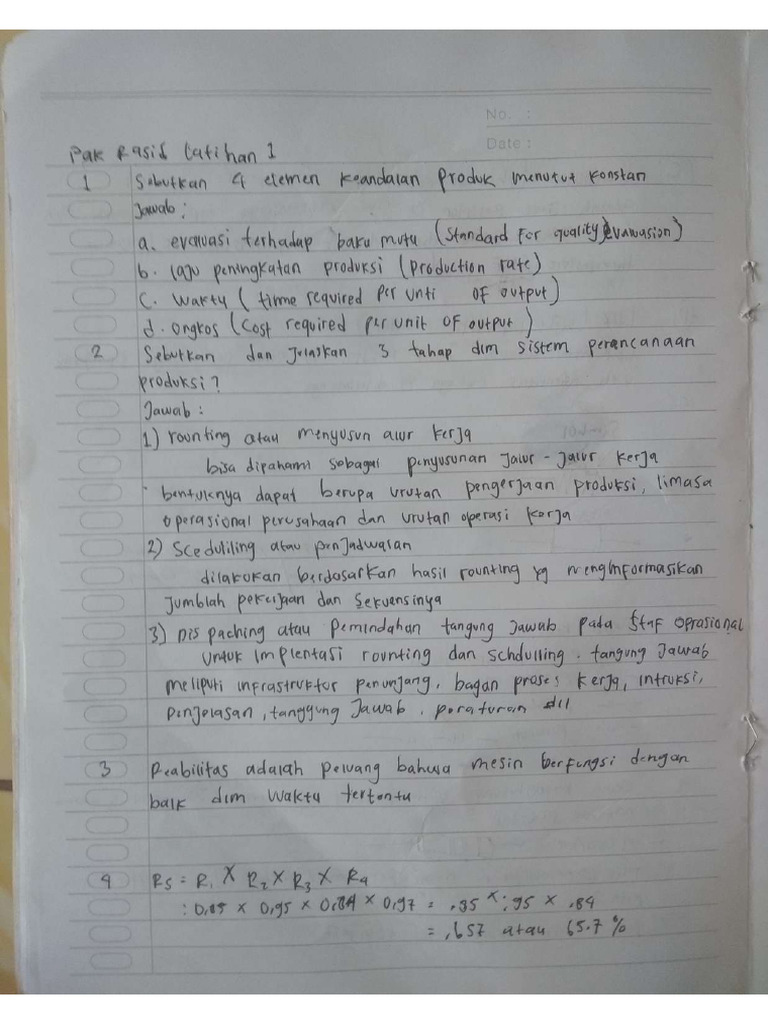 No. :
Date :
Pak Rasid Latihan 1
1 Sebutkan 4 elemen keandalan Produk menurut konstan
Jawab :
a. evaluasi terhadap baku mutu (Standard For quality evawasion)
b. laju peningkatan produksi (production rate)
c. waktu (time required per unti OF output)
d. ongkos (cost required per unit OF output)
2 Sebutkan dan Jelaskan 3 tahap dlm sistem perancanaan
produksi?
Jawab :
1) rounting atau menyusun alur kerja
bisa dipahami sebagai penyusunan Jalur - Jalur kerja
bentuknya dapat berupa urutan pengerjaan produksi, limasa
operasional perusahaan dan urutan operasi kerja
2) Sceduliling atau penjadwalan
dilakukan berdasarkan hasil rounting yg menginformasikan
Jumblah pekerjaan dan Sekuensinya
3) Dispaching atau Pemindahan tangung Jawab pada Staf oprasional
untuk implentasi rounting dan schdulling. tangung Jawab
meliputi infrastruktor penunjang, bagan proses kerja, intruksi,
penjelasan, tanggung Jawab, peraturan dll
3 Reabilitas adalah peluang bahwa mesin berfungsi dengan
baik dlm waktu tertentu
4 RS = R1 × R2 × R3 × R4
: 0,85 × 0,95 × 0,84 × 0,97 = .35 × .95 × .84
= .657 atau 65.7 %